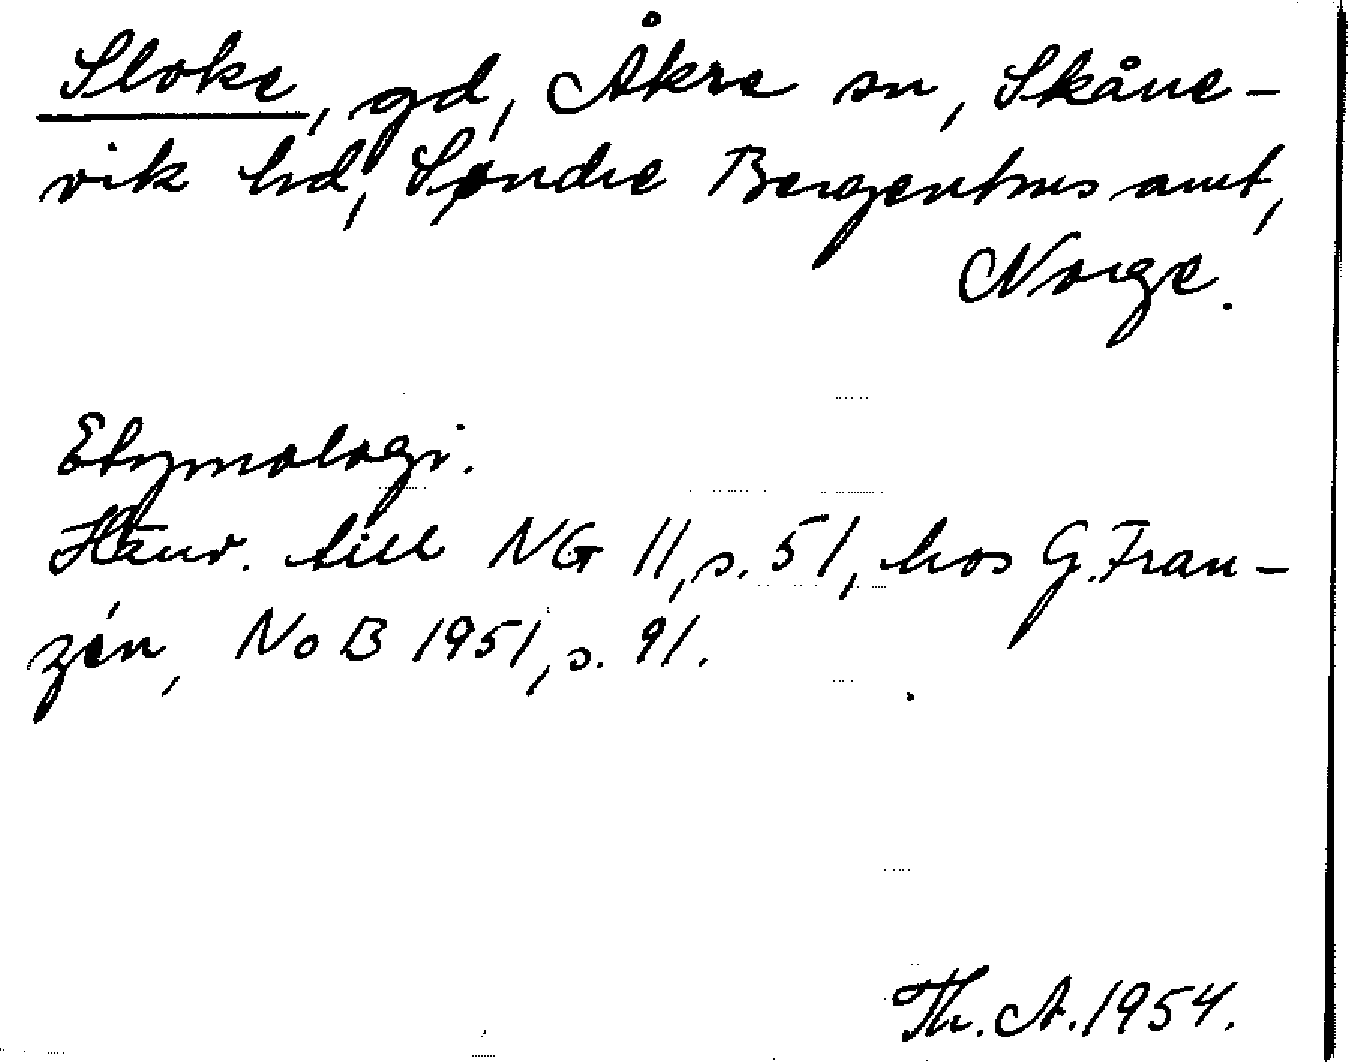 Sloke, gd, Åkre sn, Skåne-
vik hd, Søndre Bergenhus amt,
Norge.
Etymologi.
Hänv. till NG 11, s. 51, hos G. Fran-
zén, NoB 1951, s. 91.
Th. A. 1954.